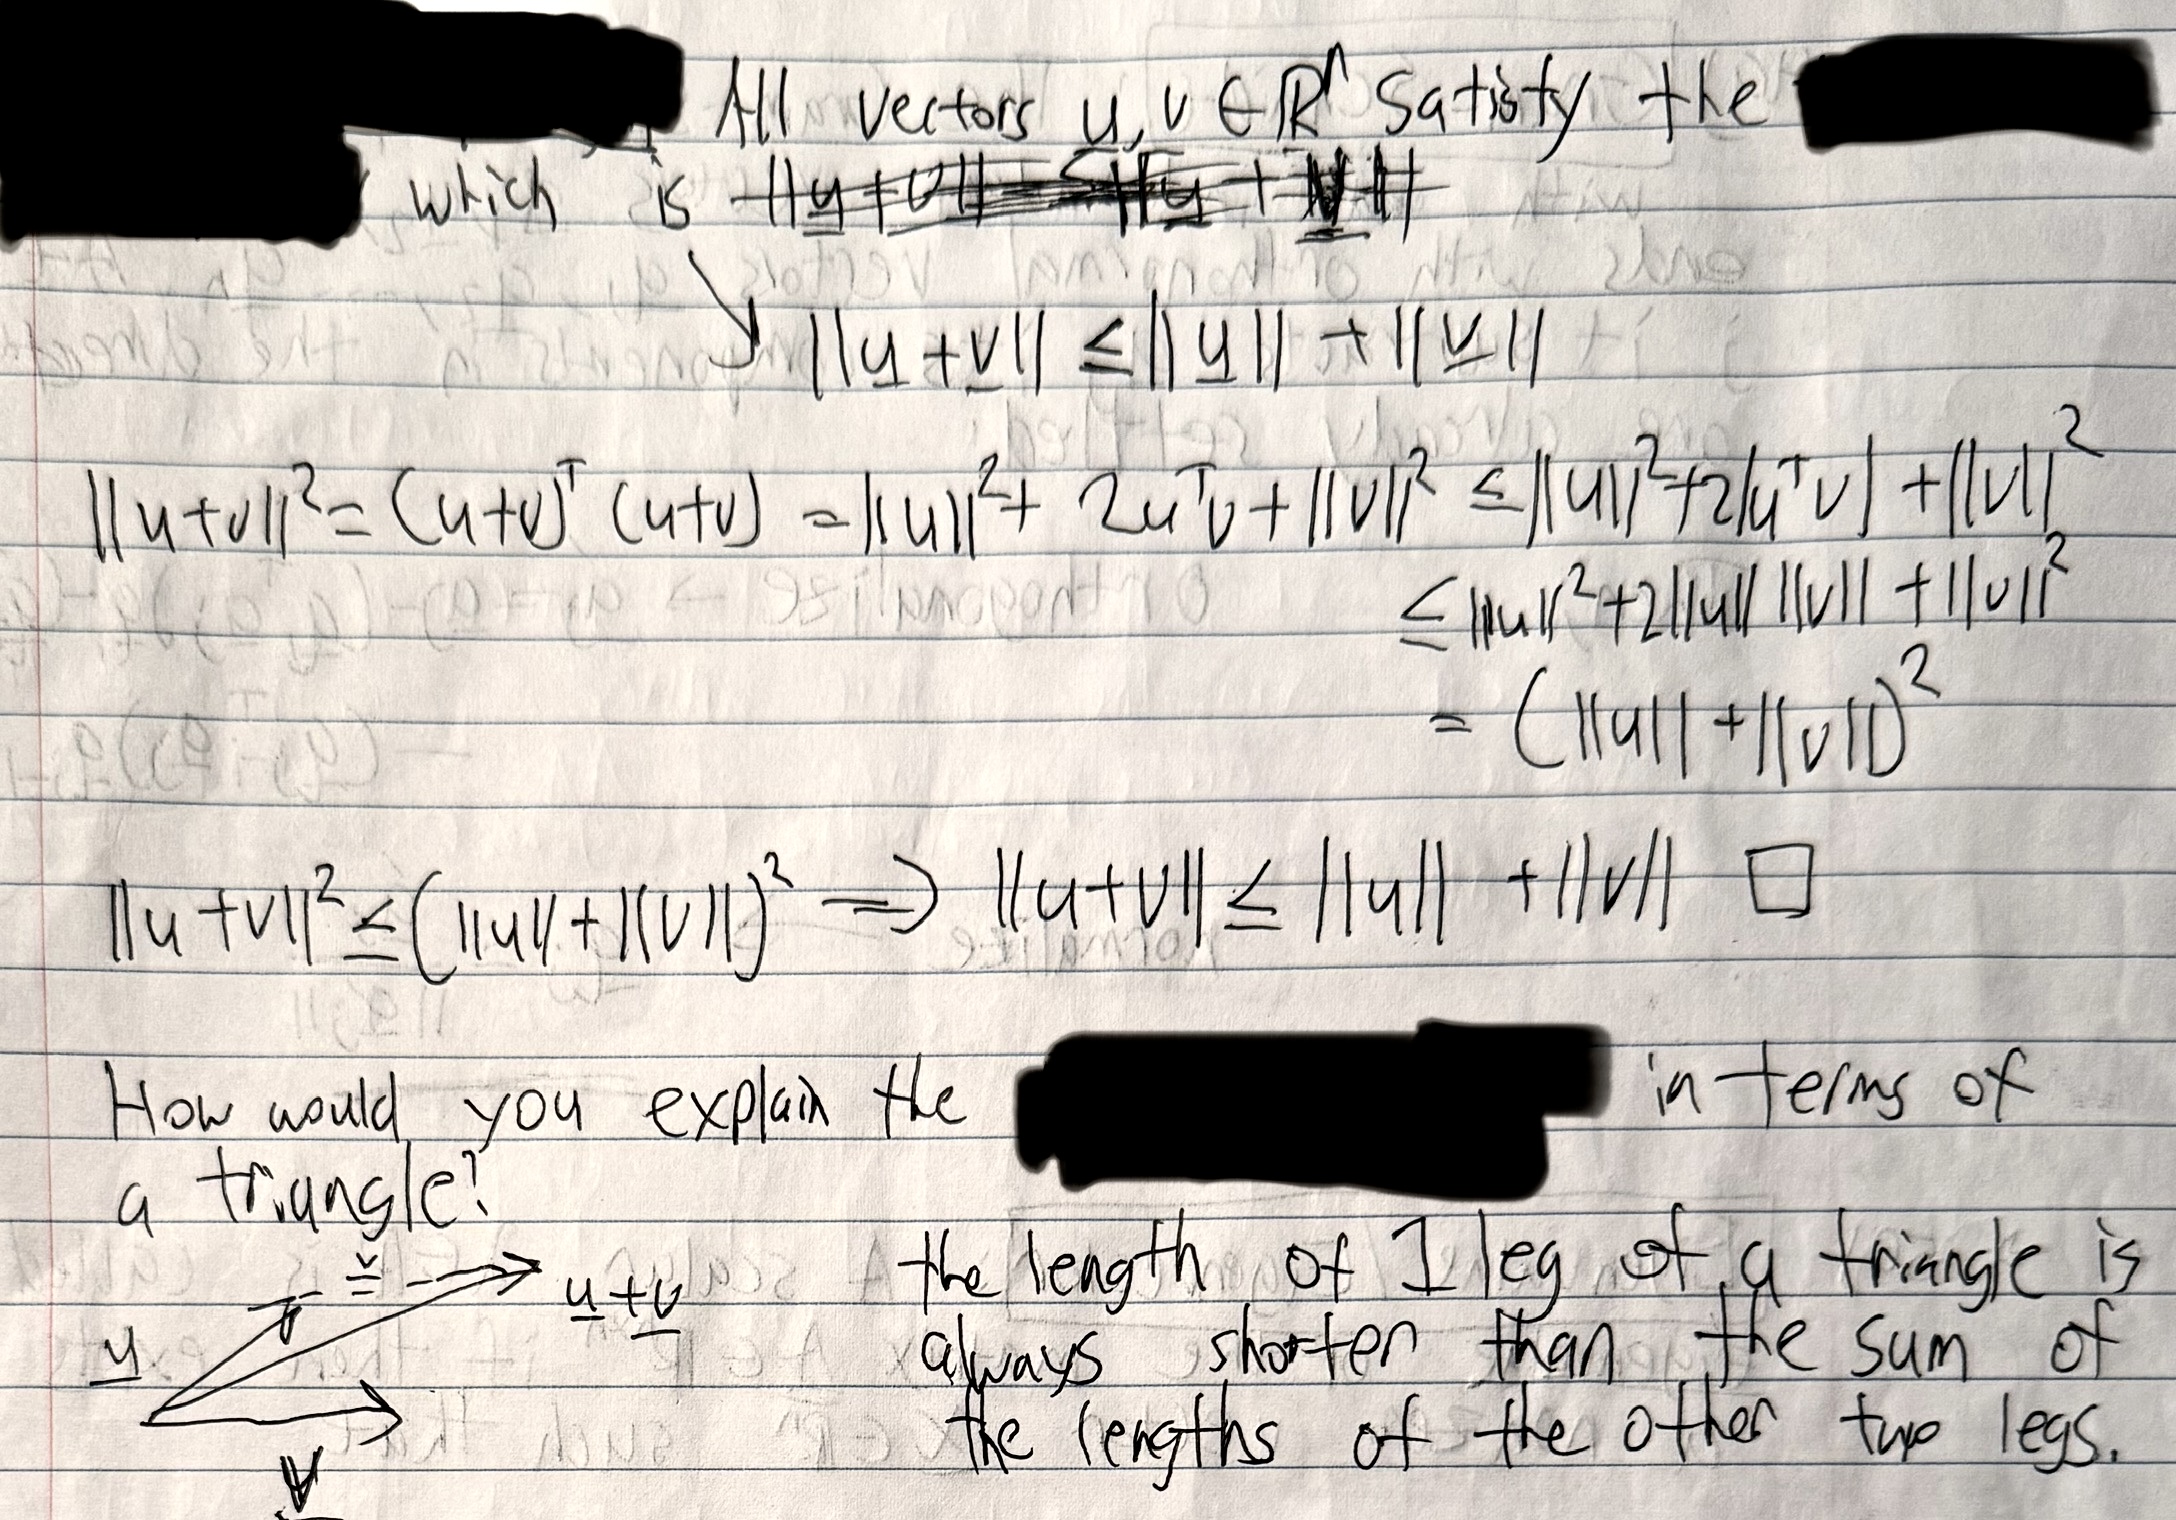 All vectors u, v ∈ ℝⁿ satisfy the
which is
||u+v|| ≤ ||u|| + ||v||
||u+v||² = (u+v)ᵀ (u+v) = ||u||² + 2uᵀv + ||v||² ≤ ||u||² + 2|uᵀv| + ||v||²
≤ ||u||² + 2||u|| ||v|| + ||v||²
= (||u|| + ||v||)²
||u+v||² ≤ (||u|| + ||v||)² ⟹ ||u+v|| ≤ ||u|| + ||v|| □
How would you explain the in terms of
a triangle?
v
u+v
u
v
the length of 1 leg of a triangle is
always shorter than the sum of
the lengths of the other two legs.